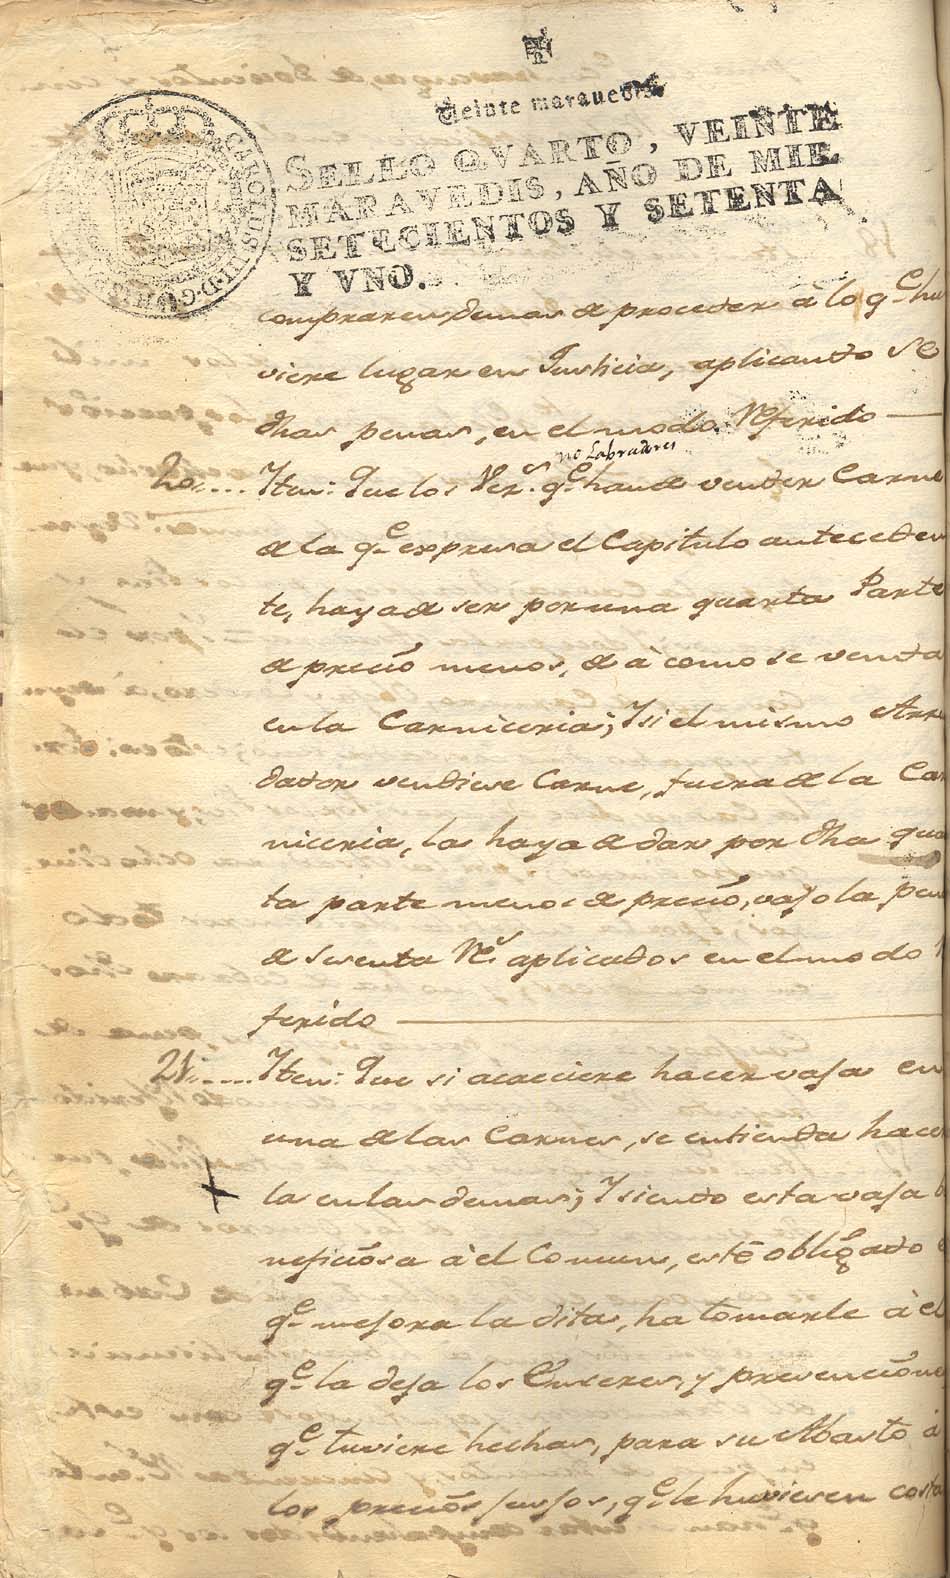 Veinte maravedis.
SELLO QVARTO, VEINTE
MARAVEDIS, AÑO DE MIL
SETECIENTOS Y SETENTA
Y VNO.
CAROLUS III D. G. HISP
compraren demas de proceder à lo q.e hu
viere lugar en Justicia, aplicando se
dhas penas, en el modo Referido
no Labradores
20..... Iten: Que los Vez.s q.e han de vender Carne
de la q.e expresa el Capitulo anteceden
te, haya de ser por una quarta Parte
de precio menos, de à como se venda
en la Carniceria; Y si el mismo Arren
dador vendiere Carne, fuera de la Car
niceria, la haya de dar por dha quar
ta parte menos de precio, vajo la pena
de sesenta R.s aplicados en el modo
ferido
21..... Iten: Que si acaeciere hacer vaja en
una de las Carnes, se entienda hacer
la en las demas; Y siendo esta vaja be
neficiosa à el Comun, esté obligado
q.e mejora la dita, ha tomarle à el
q.e la deja los Enseres, y prevenciones
q.e tuviere hechas, para su Abasto à
los precios justos, q.e le huviesen costa